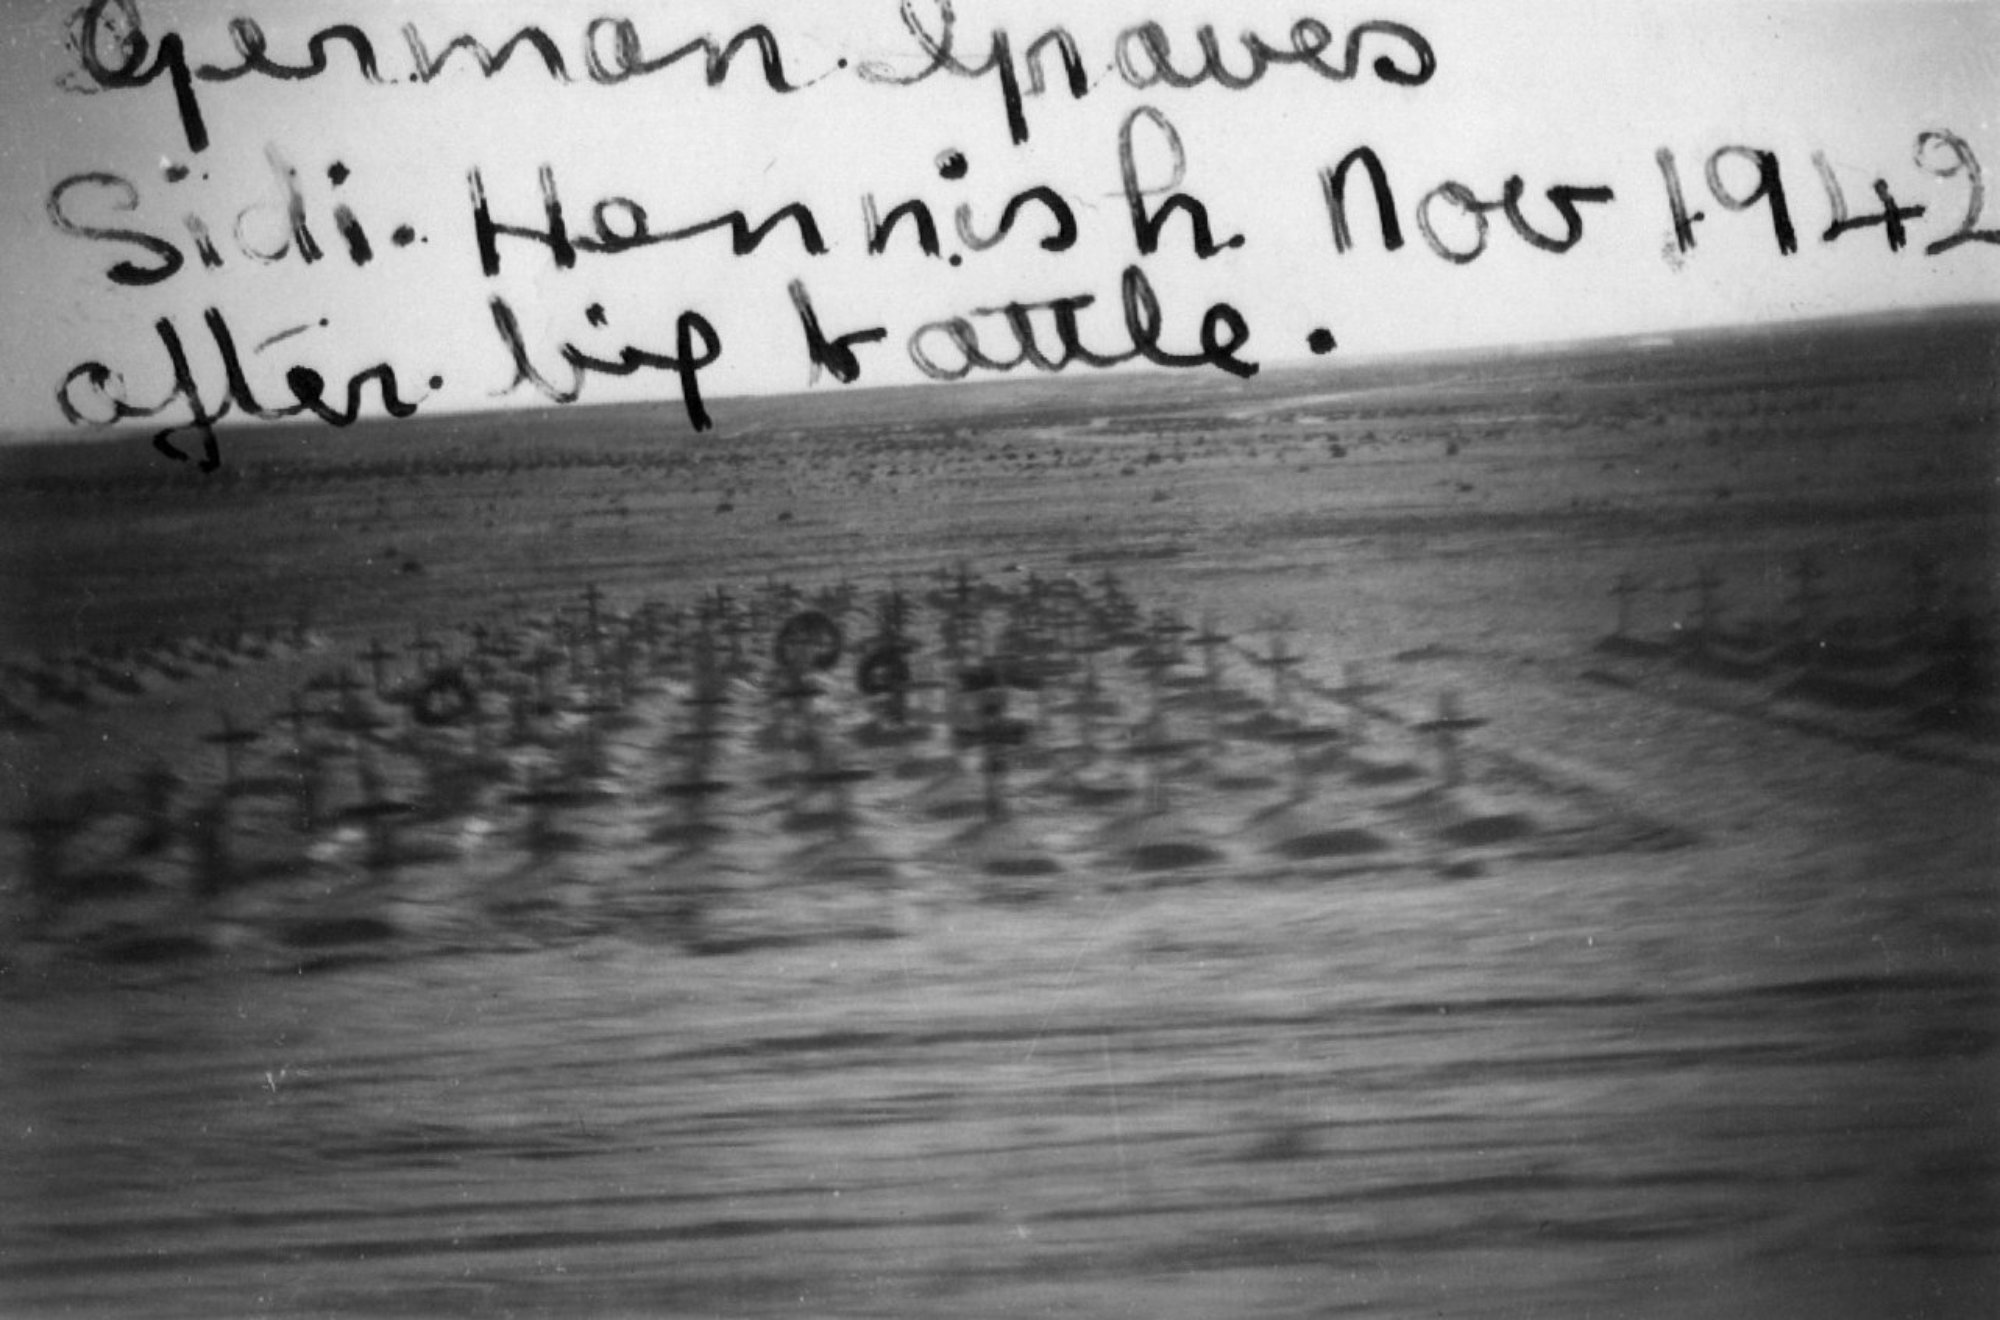 German Graves
Sidi. Hennish. Nov 1942
after big battle.